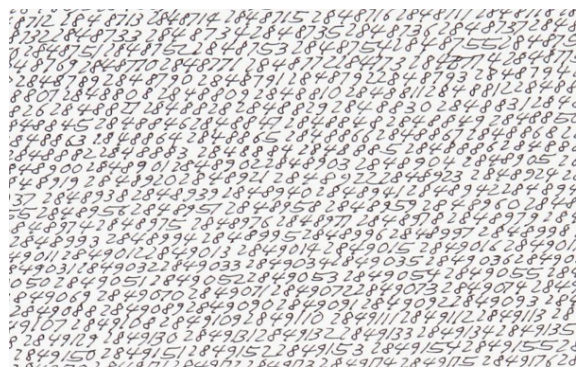 8712 2848713 2848714 2848715 2848716
8732 2848733 2848734 2848735 2848736 2848737
2848751 2848752 2848753 2848754 2848755 284875
8769 2848770 2848771 2848772 2848773 2848774 2848775
2848789 2848790 2848791 2848792 2848793 2848794
8807 2848808 2848809 2848810 2848811 2848812 28488
26 2848827 2848828 2848829 2848830 2848831 28488
48845 2848846 2848847 2848848 2848849 2848850
8863 2848864 2848865 2848866 2848867 2848868
2848882 2848883 2848884 2848885 2848886 28488
48900 2848901 2848902 2848903 2848904 2848905 28
48919 2848920 2848921 2848922 2848923 2848924 28
37 2848938 2848939 2848940 2848941 2848942 28489
55 2848956 2848957 2848958 2848959 2848960 2848
48974 2848975 2848976 2848977 2848978 2848979
2848993 2848994 2848995 2848996 2848997 28489
49011 2849012 2849013 2849014 2849015 2849016 2849
849031 2849032 2849033 2849034 2849035 2849036 28490
9050 2849051 2849052 2849053 2849054 2849055 284
849069 2849070 2849071 2849072 2849073 2849074
849088 2849089 2849090 2849091 2849092 2849093
49107 2849108 2849109 2849110 2849111 2849112 2849113
2849129 2849130 2849131 2849132 2849133 2849134 2849135
2849150 2849151 2849152 2849153 2849154 2849155
2849171 2849172 2849173 2849174 2849175 2849176